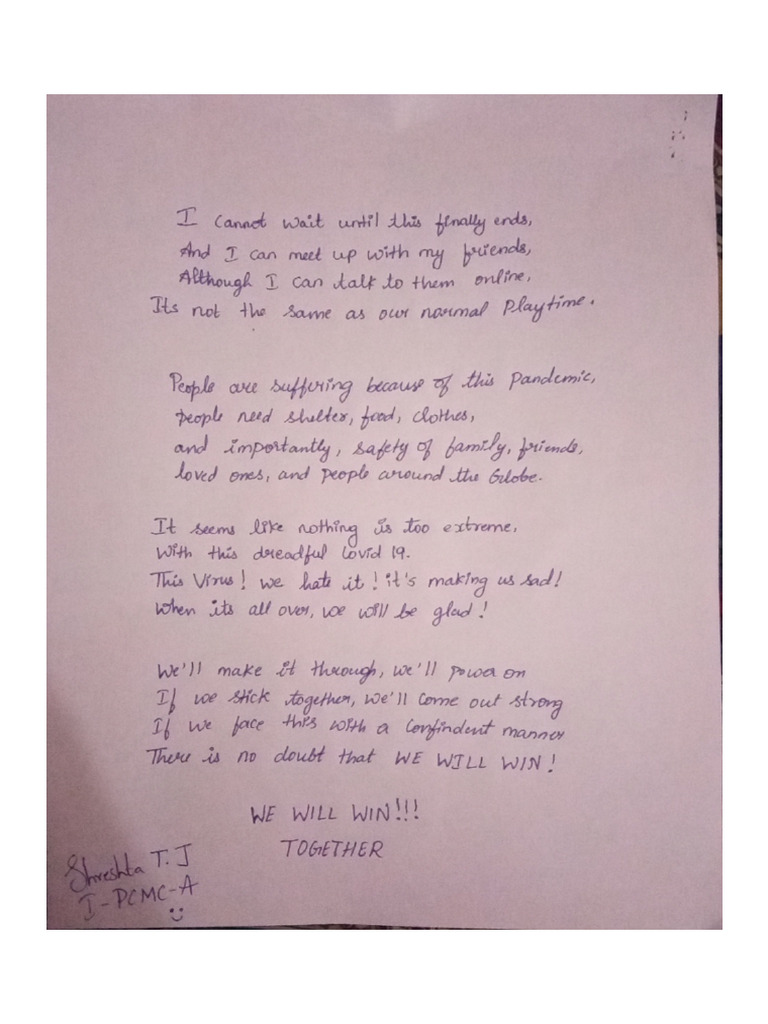 I cannot wait until this finally ends,
And I can meet up with my friends,
Although I can talk to them online,
Its not the same as our normal Playtime.
People are suffering because of this Pandemic,
people need shelter, food, clothes,
and importantly, safety of family, friends,
loved ones, and people around the Globe.
It seems like nothing is too extreme,
With this dreadful Covid 19.
This Virus! we hate it! it's making us sad!
When its all over, we will be glad!
We'll make it through, we'll power on
If we stick together, we'll come out strong
If we face this with a confindent manner
There is no doubt that WE WILL WIN!
WE WILL WIN!!!
TOGETHER
Shreshta T.J
I-PCMC-A